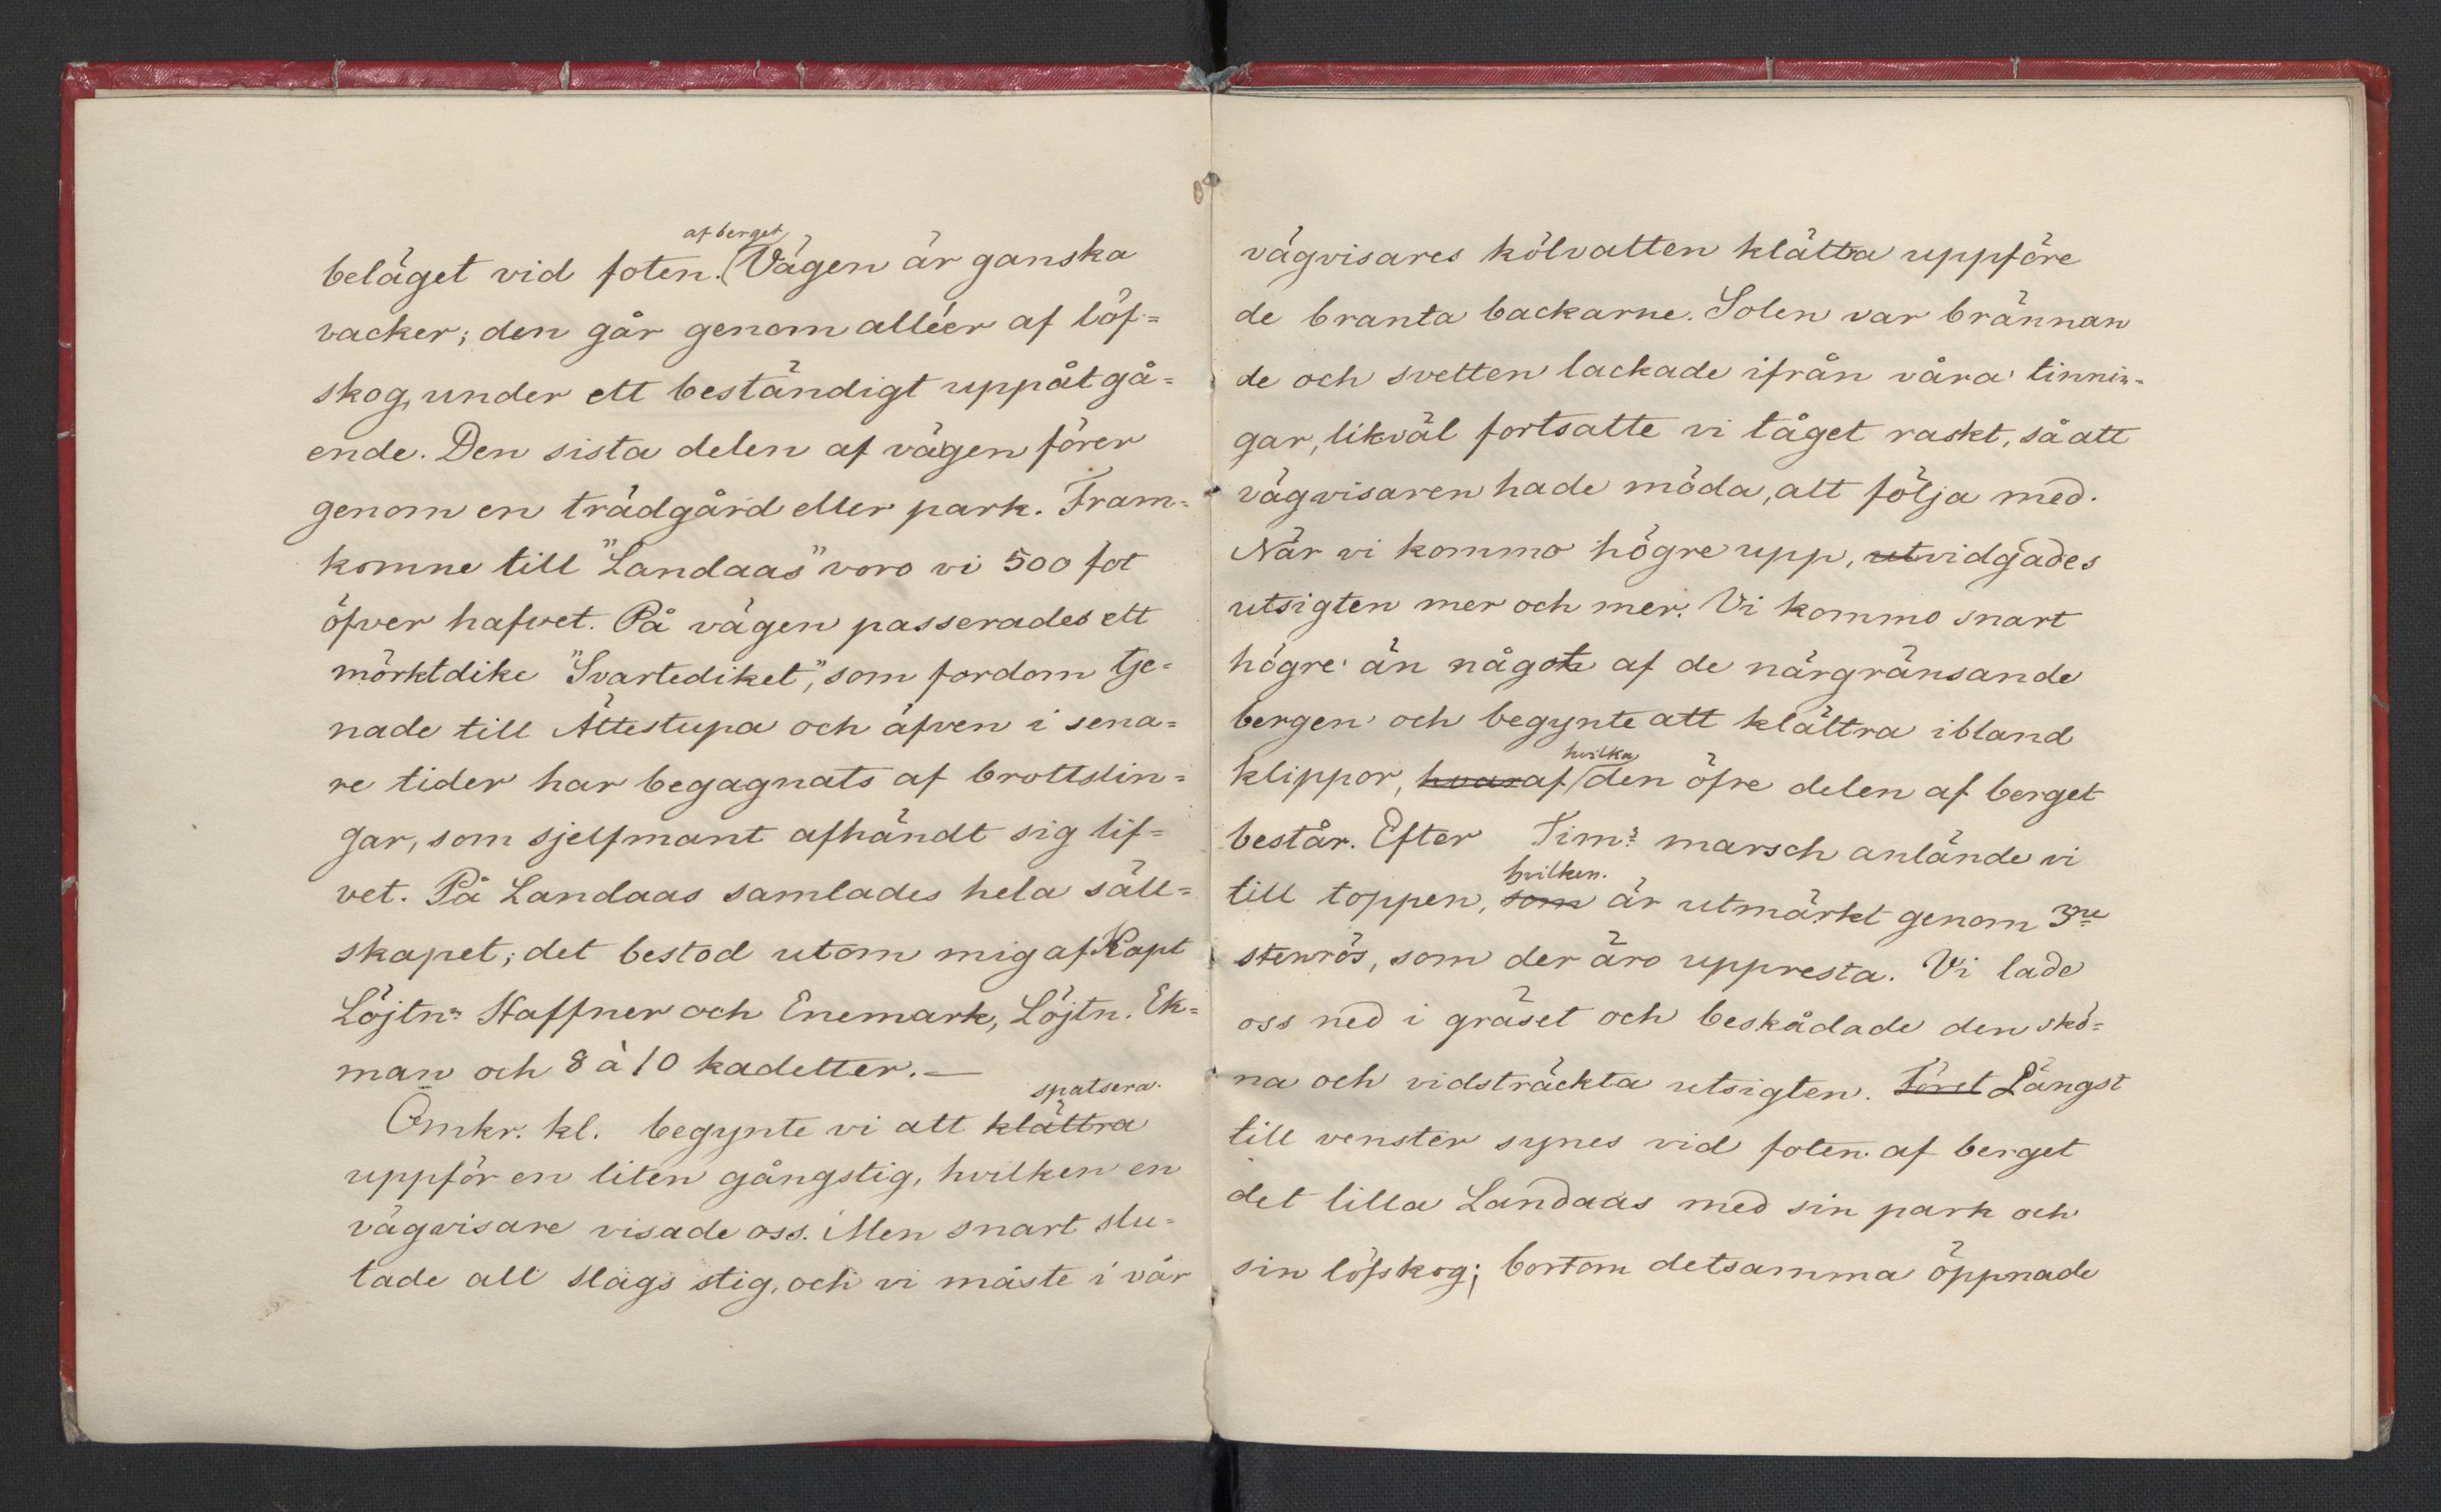 af berget
beläget vid foten. Vägen är ganska
vacker; den går genom alléer af löf=
skog, under ett beständigt uppåtgå=
ende. Den sista delen af vägen förer
genom en trädgård eller park. Fram=
komne till "Landaas" voro vi 500 fot
öfver hafvet. På vägen passerades ett
mörkt dike "Svartediket", som fordom tje=
nade till Ättestupa och äfven i sena=
re tider har begagnats af brottslin=
gar, som sjelfmant afhändt sig lif=
vet. På Landaas samlades hela säll=
skapet; det bestod utom mig af Kapt
Löjtn:r Haffner och Enemark, Löjtn. Ek=
man och 8 à 10 kadetter.—
spatsera
Omkr. kl. begynte vi att klättra
uppför en liten gångstig, hvilken en
vägvisare visade oss. Men snart slu=
tade all slags stig, och vi måste i vår
vägvisares kölvatten klättra uppföre
de branta backarne. Solen var brännan
de och svetten lackade ifrån våra tinnin=
gar, likväl fortsatte vi tåget raskt, så att
vägvisaren hade möda, att följa med.
När vi kommo högre upp, utvidgades
utsigten mer och mer. Vi kommo snart
högre än något af de närgränsande
bergen och begynte att klättra ibland
hvilka
klippor, hvaraf den öfre delen af berget
består. Efter Tim:s marsch anlände vi
hvilken
till toppen, som är utmärkt genom 3ne
stenrös, som der äro uppresta. Vi lade
oss ned i gräset och beskådade den skö=
na och vidsträckta utsigten. Först Längst
till venster synes vid foten af berget
det lilla Landaas med sin park och
sin löfskog; bortom detsamma öppnade